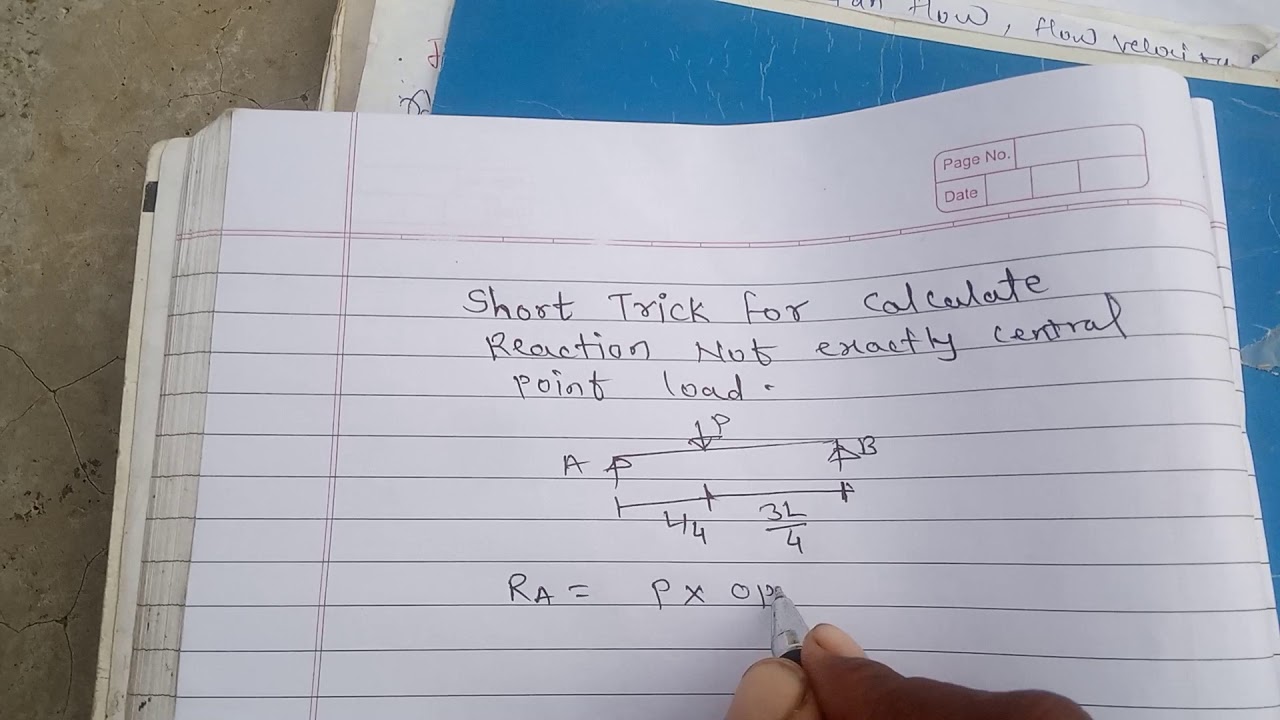 flow, flow velocity
Page No.
Date
Short Trick for calculate
Reaction Not exactly central
point load.
P
A
B
L/4
3L/4
RA = P × opp